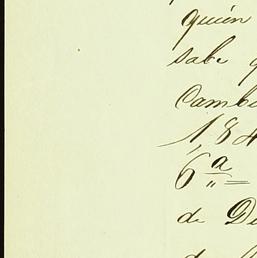 quién
sabe q
Cambi
1,84
6ª =
de De
de